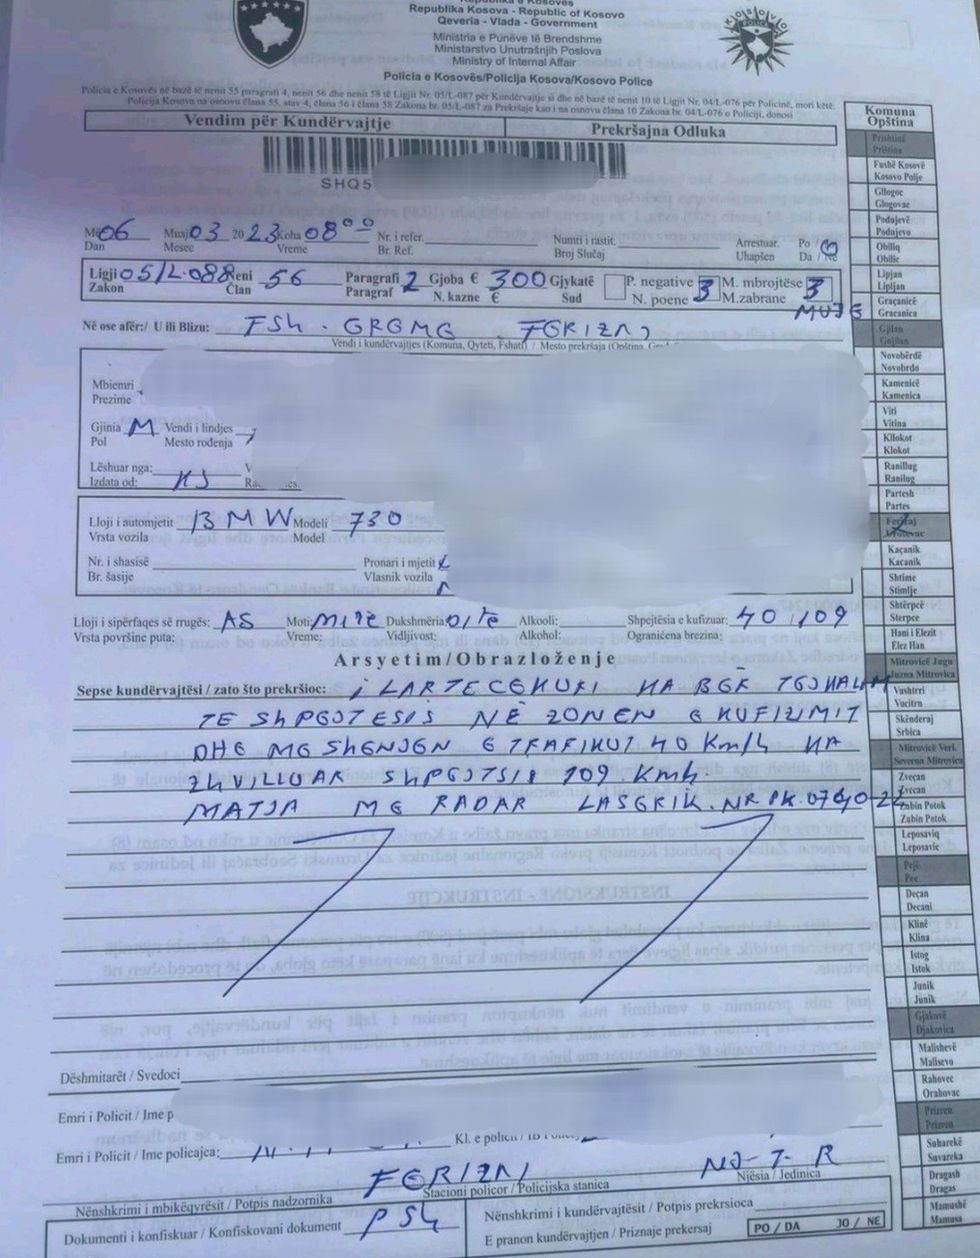 Republika e Kosovës
Republika Kosova - Republic of Kosovo
Qeveria - Vlada - Government
Ministria e Punëve të Brendshme
Ministarstvo Unutrašnjih Poslova
Ministry of Internal Affair
Policia e Kosovës/Policija Kosova/Kosovo Police
Policia e Kosovës në bazë të nenit 55 paragrafi 4, nenit 56 dhe nenit 58 të Ligjit Nr. 05/L-087 për Kundërvajtje si dhe në bazë të nenit 10 të Ligjit Nr. 04/L-076 për Policinë, mori këtë:
Policija Kosova na osnovu člana 55, stav 4, člana 56 i člana 58 Zakona br. 05/L-087 za Prekršaje kao i na osnovu člana 10 Zakona br. 04/L-076 o Policiji, donosi
Vendim për Kundërvajtje Prekršajna Odluka
SHQ5
06 Muaj 03 2023 Koha 08⁰⁰ Nr. i refer. Numri i rastit. Arrestuar. Po /
Dan Mesec Vreme Br. Ref. Broj Slučaj Uhapšen Da /
Ligji 05/L-088 Neni 56 Paragrafi 2 Gjoba € 300 Gjykatë P. negative 3 M. mbrojtëse 3
Zakon Član Paragraf N. kazne € Sud N. poene M.zabrane MUJE
Në ose afër:/ U ili Blizu: FSH. GREME FERIZAJ
Vendi i kundërvajtjes (Komuna, Qyteti, Fshati) / Mesto prekršaja (Opština,
Mbiemri
Prezime
Gjinia M Vendi i lindjes
Pol Mesto rođenja
Lëshuar nga:
Izdata od: KS
Lloji i automjetit BMW Modeli 730
Vrsta vozila Model
Nr. i shasisë Pronari i mjetit
Br. šasije Vlasnik vozila
Lloji i sipërfaqes së rrugës: AS Moti: MIRË Dukshmëria DITË Alkooli: Shpejtësia e kufizuar: 40/109
Vrsta površine puta: Vreme: Vidljivost: Alkohol: Ograničena brezina:
Arsyetim/Obrazloženje
Sepse kundërvajtësi / zato što prekršioc: I LARTECEKURI KA BËR TEJKALIM
TE SHPEJTESIS NË ZONEN E KUFIZIMIT
DHE ME SHENJEN E TRAFIKUT 40 Km/h KA
ZHVILLUAR SHPEJTSI 109. Kmh.
MATJA ME RADAR LASERIK. NR PK.
Dëshmitarët / Svedoci
Emri i Policit / Ime p
Emri i Policit / Ime policajca: Kl. e policit /
FERIZAJ NJ-T-R
Nënshkrimi i mbikëqyrësit / Potpis nadzornika Stacioni policor / Policijska stanica Njësia / Jedinica
Dokumenti i konfiskuar / Konfiskovani dokument PSH Nënshkrimi i kundërvajtësit / Potpis prekrsioca
E pranon kundërvajtjen / Priznaje prekersaj PO / DA JO / NE
Komuna
Opština
Prishtinë
Priština
Fushë Kosovë
Kosovo Polje
Gllogoc
Glogovac
Podujevë
Podujevo
Obiliq
Obilic
Lipjan
Lipljan
Graçanicë
Gracanica
Gjilan
Gnjilan
Novobërdë
Novobrdo
Kamenicë
Kamenica
Viti
Vitina
Kllokot
Klokot
Ranillug
Ranilug
Partesh
Partes
Ferizaj
Uroševac
Kaçanik
Kacanik
Shtime
Stimlje
Shtërpcë
Sterpce
Hani i Elezit
Elez Han
Mitrovicë Jugu
Juzna Mitrovica
Vushtrri
Vucitrn
Skënderaj
Srbica
Mitrovicë Veri.
Severna Mitrovica
Zveçan
Zvecan
Zubin Potok
Zubin Potok
Leposaviq
Leposavic
Pejë
Pec
Deçan
Decani
Klinë
Klina
Istog
Istok
Junik
Junik
Gjakovë
Djakovica
Malishevë
Malisevo
Rahovec
Orahovac
Prizren
Prizren
Suharekë
Suvareka
Dragash
Dragas
Mamushë
Mamusa